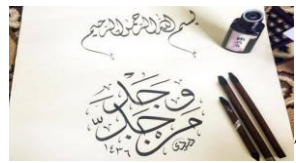 بسم الله الرحمن الرحيم
مَن جَدَّ
وَجَدَ
١٤٣٦